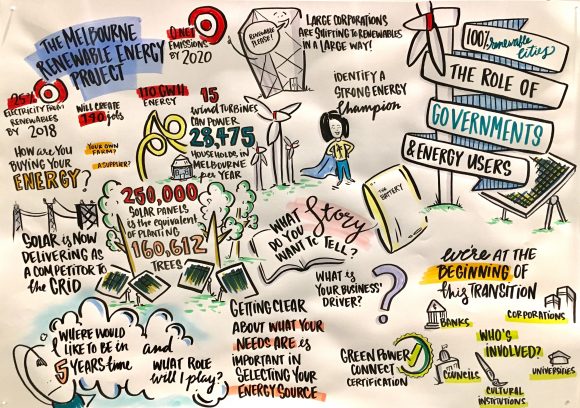 THE MELBOURNE
RENEWABLE ENERGY
PROJECT
0 NET
EMISSIONS
BY 2020
RENEWABLE
PLEASE!
LARGE CORPORATIONS
ARE SHIFTING TO RENEWABLES
IN A LARGE WAY!
100% renewable
cities
THE ROLE OF
GOVERNMENTS
& ENERGY USERS
25%
ELECTRICITY FROM
RENEWABLES
BY 2018
WILL CREATE
140 jobs
110 GWH
ENERGY
15
wind TURBINES
CAN POWER
28,475
HOUSEHOLDS IN
MELBOURNE
per YEAR
IDENTIFY A
STRONG ENERGY
champion
HOW ARE YOU
BUYING YOUR
ENERGY?
YOUR OWN
FARM?
A SUPPLIER?
250,000
SOLAR PANELS
is the EQUIVALENT
OF PLANTING
160,612
TREES
SOLAR is NOW
DELIVERING AS
A COMPETITOR to
the GRID
WHAT
Story
DO YOU
WANT to TELL?
THE
BATTERY
we're AT THE
BEGINNING OF
this TRANSITION
WHAT is
YOUR BUSINESS'
DRIVER?
?
WHERE WOULD
I LIKE to BE in
5 YEARS time
and
WHAT ROLE
will I play?
GETTING CLEAR
ABOUT WHAT YOUR
NEEDS ARE is
IMPORTANT in
SELECTING YOUR
ENERGY SOURCE
GREEN POWER
CONNECT
CERTIFICATION
BANKS
CORPORATIONS
WHO'S
INVOLVED?
COUNCILS
CULTURAL
INSTITUTIONS
UNIVERSITIES